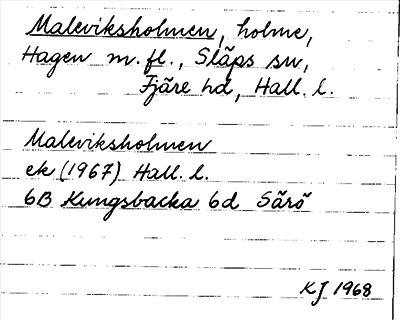 Maleviksholmen, holme,
Hagen m. fl., Släps sn,
Fjäre hd, Hall. l.
Maleviksholmen
ek (1967) Hall. l.
6B Kungsbacka 6d Särö
KJ 1968